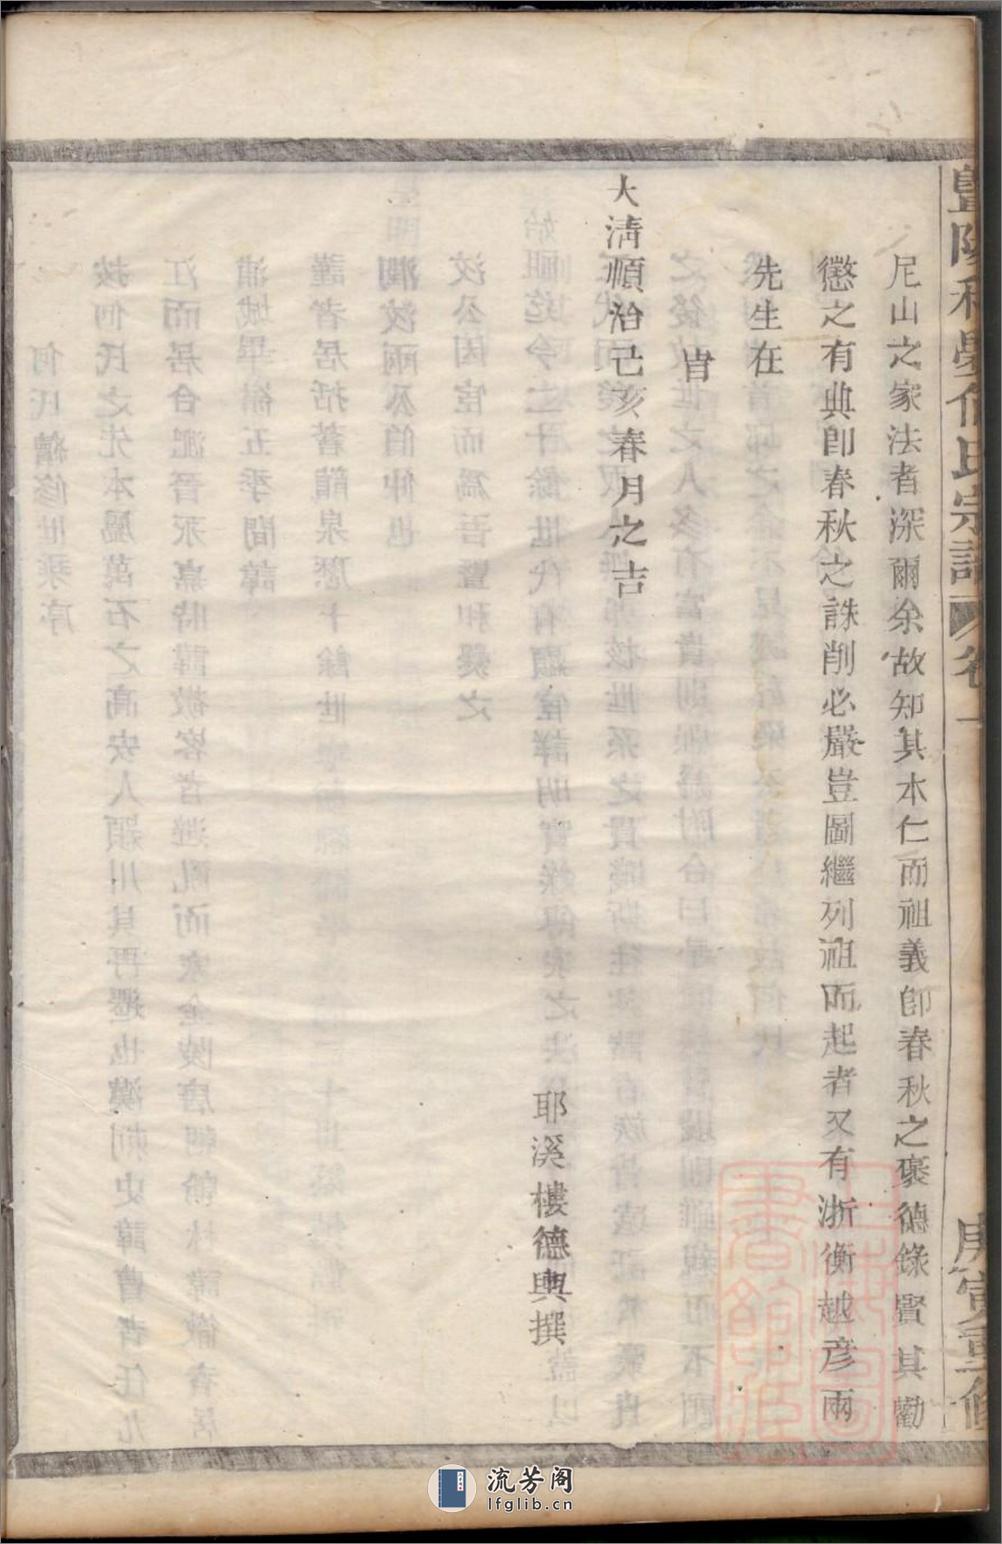 暨陽和㠜何氏宗譜 卷一 庚寅重修
尼山之家法者深爾余故知其本仁而祖義卽春秋之褒德錄賢其勸
懲之有典卽春秋之誅削必嚴豈圖繼列祖而起者又有浙衡越彥兩
先生在
旹
大淸順治己亥春月之吉
耶溪樓德輿撰
上海圖書館藏
流芳阁
lfglib.cn